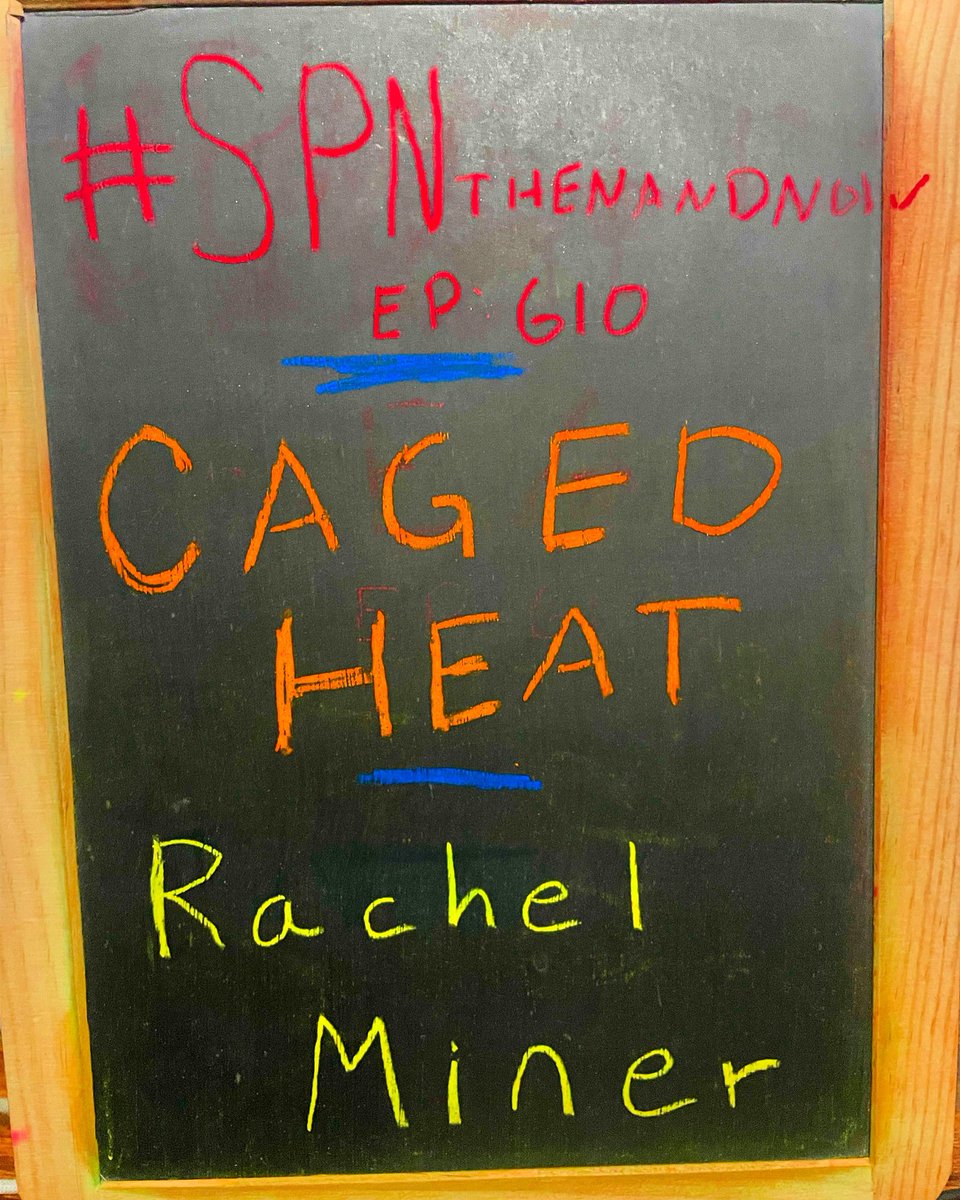 #SPNTHENANDNOW
EP: 610
CAGED
HEAT
Rachel
Miner